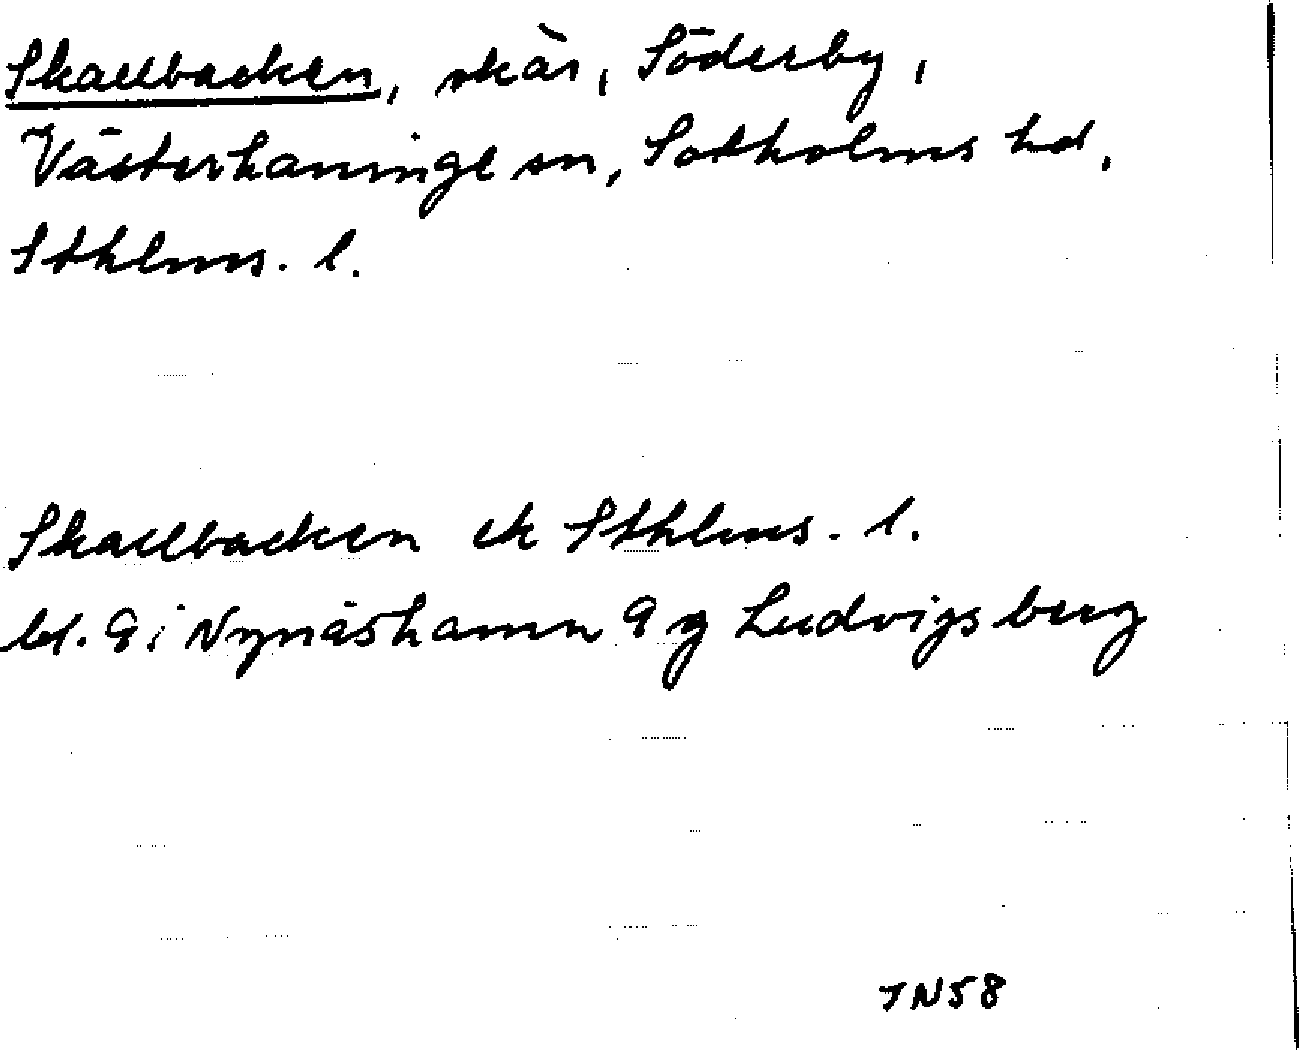 Skallbacken, skär, Söderby,
Västerhaninge sn, Sotholms hd,
Sthlms. l.
Skallbacken ek Sthlms. l.
bl. 9 i Nynäshamn 9 g Ludvigsberg
JN58